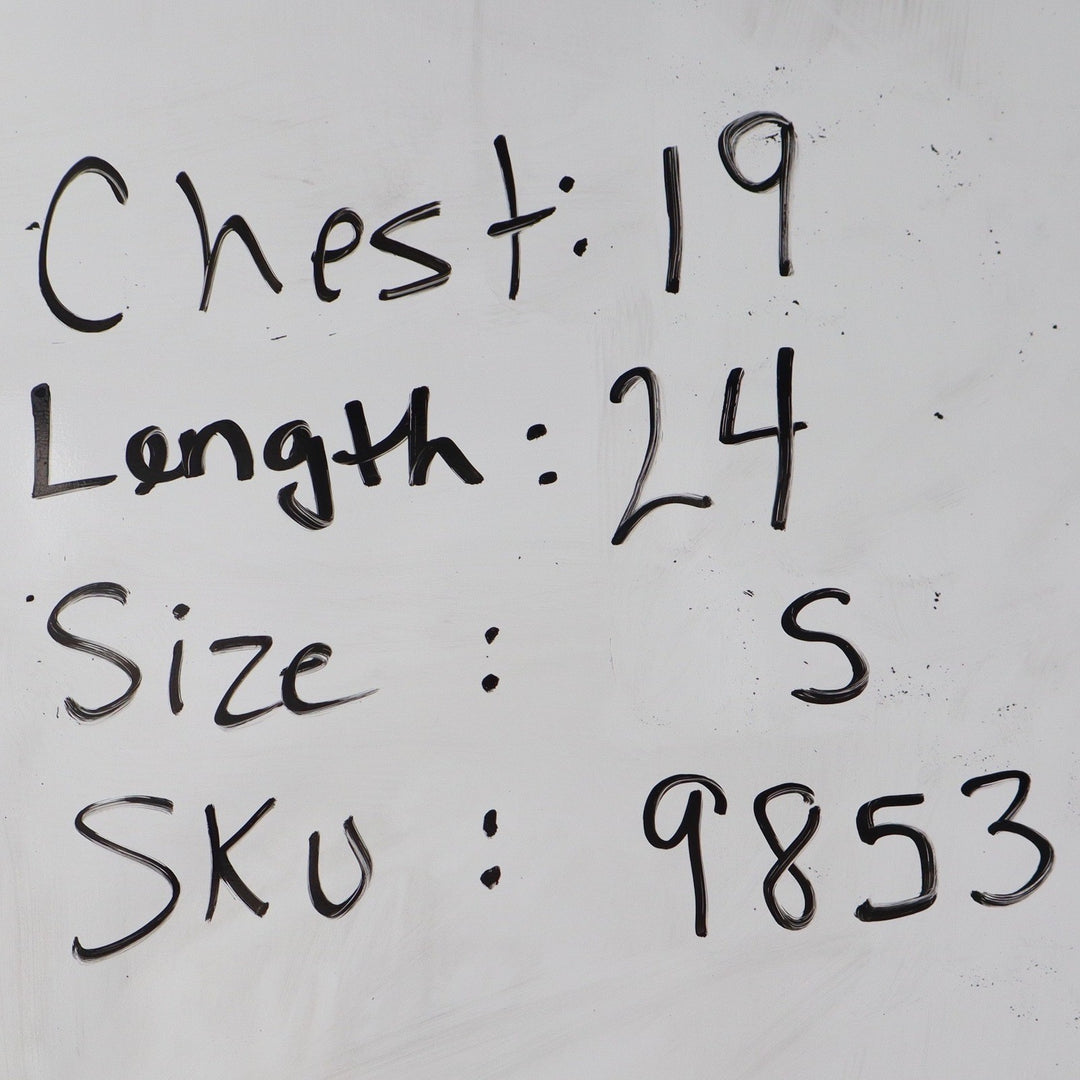 Chest: 19
Length: 24
Size : S
SKU : 9853